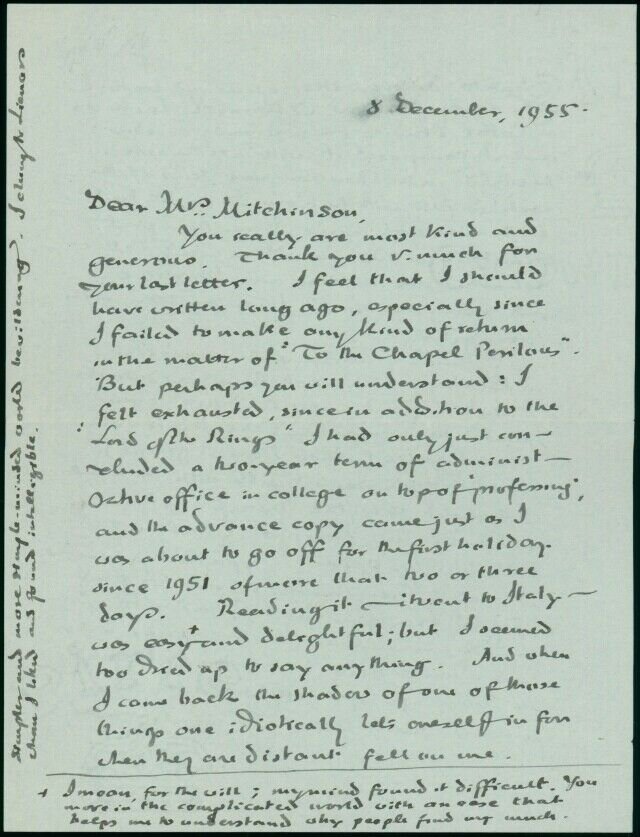 8 December, 1955.
Dear Mrs. Mitchinson,
You really are most kind and
generous. Thank you v. much for
your last letter. I feel that I should
have written long ago, especially since
I failed to make any kind of return
in the matter of "To the Chapel Perilous".
But perhaps you will understand: I
felt exhausted, since in addition to the
"Lord of the Rings" I had only just con-
cluded a two-year term of administ-
rative office in college on top of 'professing',
and the advance copy came just as I
was about to go off for the first holiday
since 1951 of more than two or three
days. Reading it — it went to Italy —
was easy+ and delightful; but I seemed
too dried up to say anything. And when
I came back the shadow of one of those
things one idiotically lets oneself in for
when they are distant fell on me.
+ I mean, for the will; my mind found it difficult. You
move in the complicated world with an ease that
helps me to understand why people find my much
simpler and more simple-minded world bewildering. I clung to
than I liked and found intelligible.